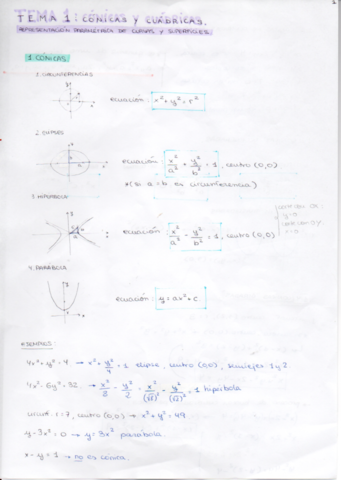 TEMA 1: CÓNICAS Y CUÁDRICAS.
REPRESENTACIÓN PARAMÉTRICA DE CURVAS Y SUPERFICIES.
1 CÓNICAS
1. CIRCUNFERENCIAS
ecuación: x² + y² = r²
2. ELIPSES
ecuación: x²/a² + y²/b² = 1, centro (0,0)
*(si a = b es circunferencia)
3. HIPÉRBOLA
ecuación: x²/a² - y²/b² = 1, centro (0,0)
y=0
x=0
4. PARÁBOLA
ecuación: y = ax² + c
EJEMPLOS:
4x² + y² = 4 → x² + y²/4 = 1 elipse, centro (0,0), semiejes 1 y 2
- 1 hipérbola
r = 7, centro (0,0) → x² + y² = 49
y - 3x² = 0 → y = 3x² parábola.
x - y = 1 → no es cónica.